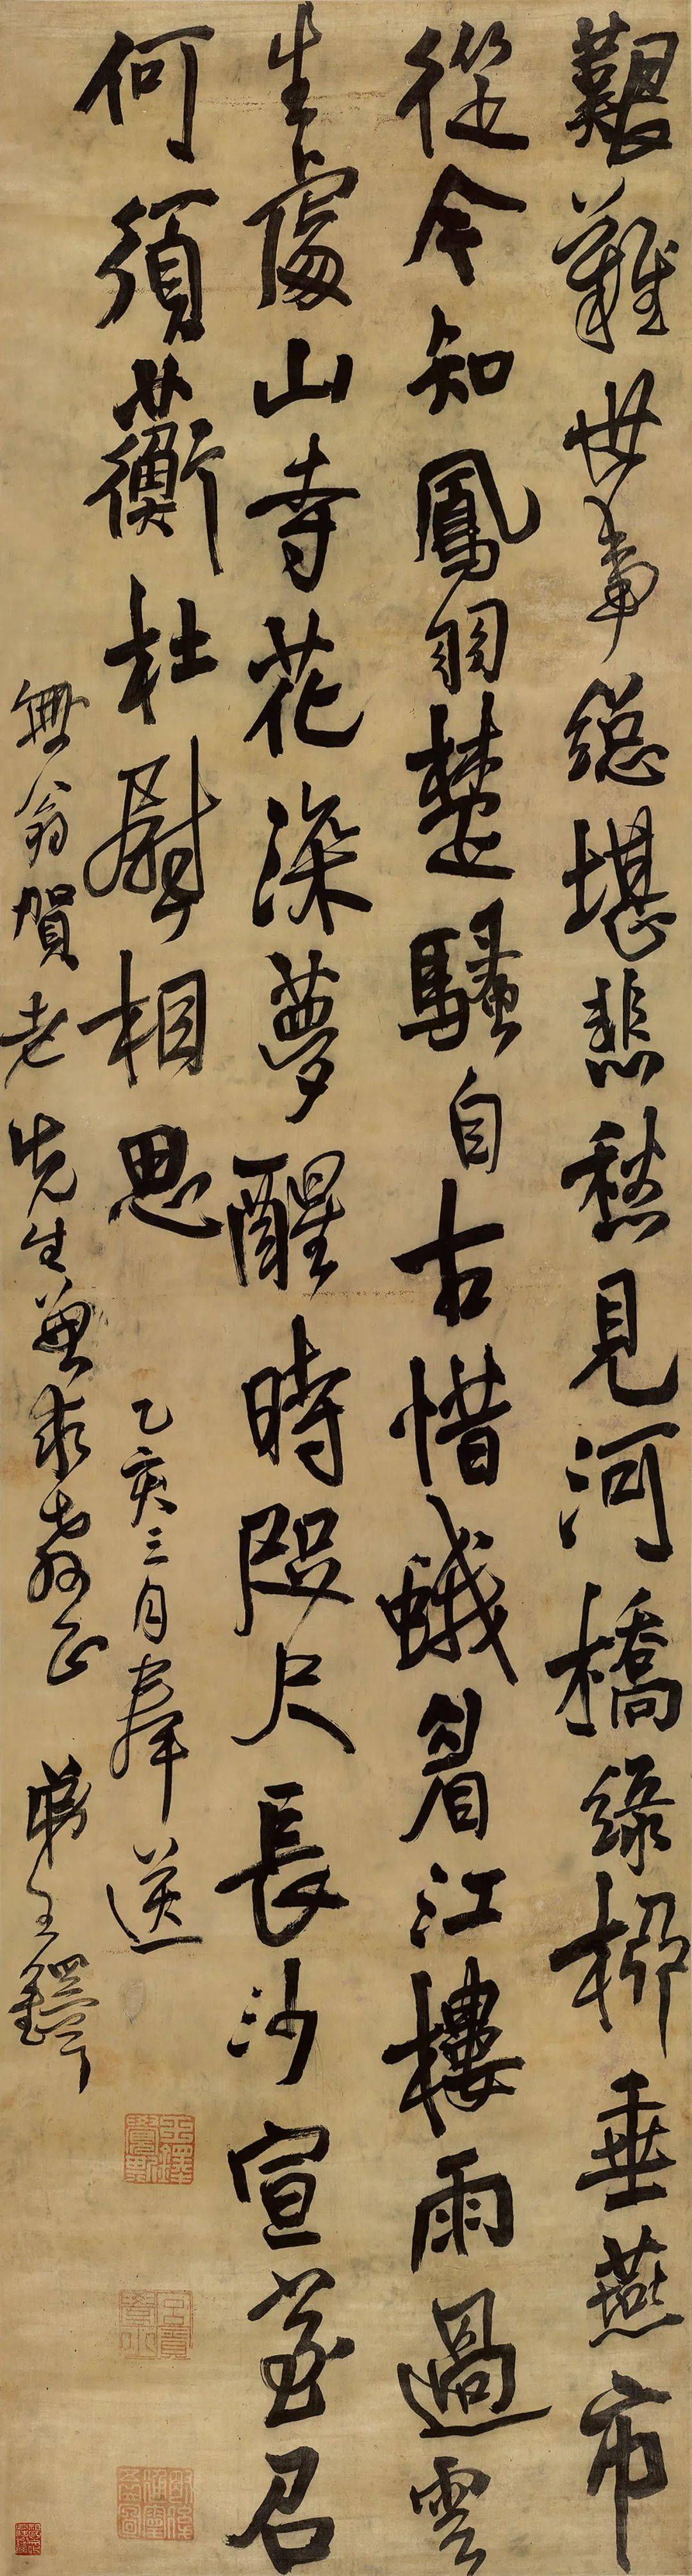 艱難世事總堪悲愁見河橋綠柳垂燕市
從今知鳳羽楚騷自古惜蛾眉江樓雨過雲
生處山寺花深夢醒時咫尺長沙宣室召
何須蘅杜尉相思
乙亥三月奉送
無翁賀老先生兼求教正 弟王鐸